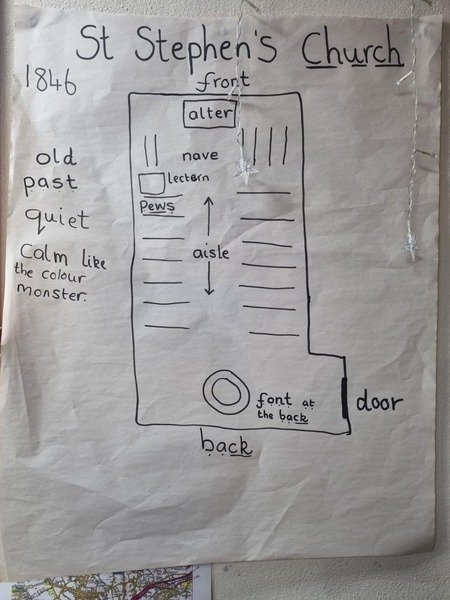 St Stephen's Church
1846
front
alter
nave
lectern
pews
aisle
old
past
quiet
Calm like
the colour
monster.
font at
the back
door
back